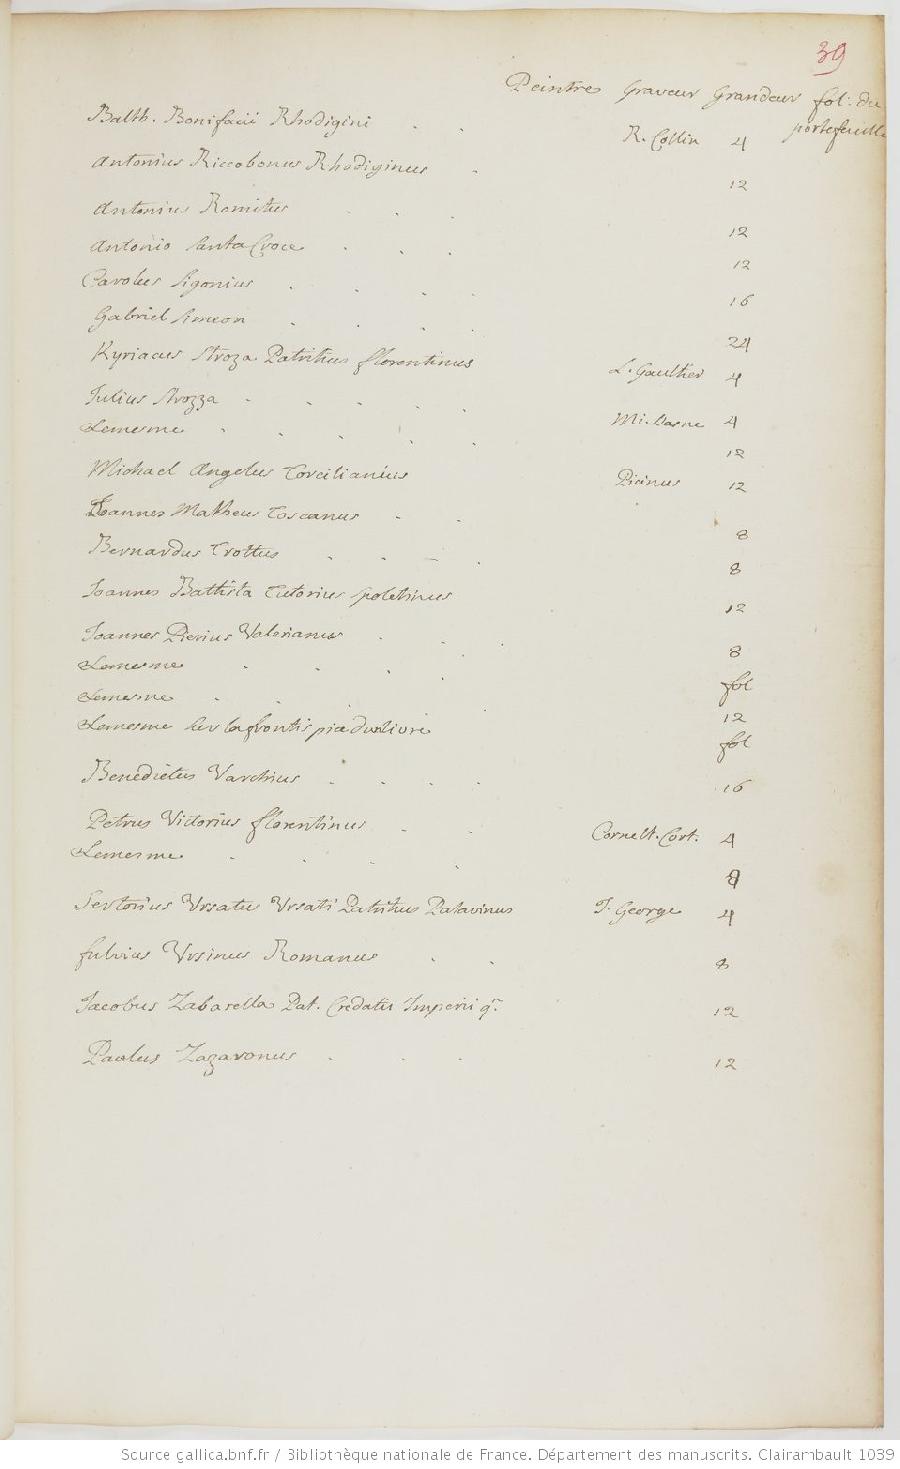 39
Peintre Graveur Grandeur fol. du portefeuille
Balth. Bonifacii Rhodigini . . R. Collin 4
Antonius Riccobonus Rhodiginus . 12
Antonius Romitus . . . 12
Antonio Santa Croce . . . 12
Carolus Sigonius . . . . 16
Gabriel Simeon . . . . 24
Kyriacus Stroza Patritius florentinus L. Gaultier 4
Julius Strozza . . . . . Mi. Lasne 4
Lemesme . . . . . 12
Michael Angelus Torcilianius Picinus 12
Joannes Matheus Toscanus . . 8
Bernardus Trottus . . . . 8
Joannes Battista Tutorius spoletinus 12
Joannes Pierius Valerianus . . . 8
Lemesme . . . . fol
Lemesme . . . . 12
Lemesme sur la frontispice du livre fol
Benedictus Varchius . . . . 16
Petrus Victorius florentinus . . Cornelt. Cort. 4
Lemesme . . . . 8
Sertorius Ursatus Ursati Patritius Patavinus J. George 4
fulvius Ursinus Romanus . . 8
Jacobus Zabarella Pat. Credatu Imperii q. 12
Paulus Zazaronus . . . 12
Source gallica.bnf.fr / Bibliothèque nationale de France. Département des manuscrits. Clairambault 1039